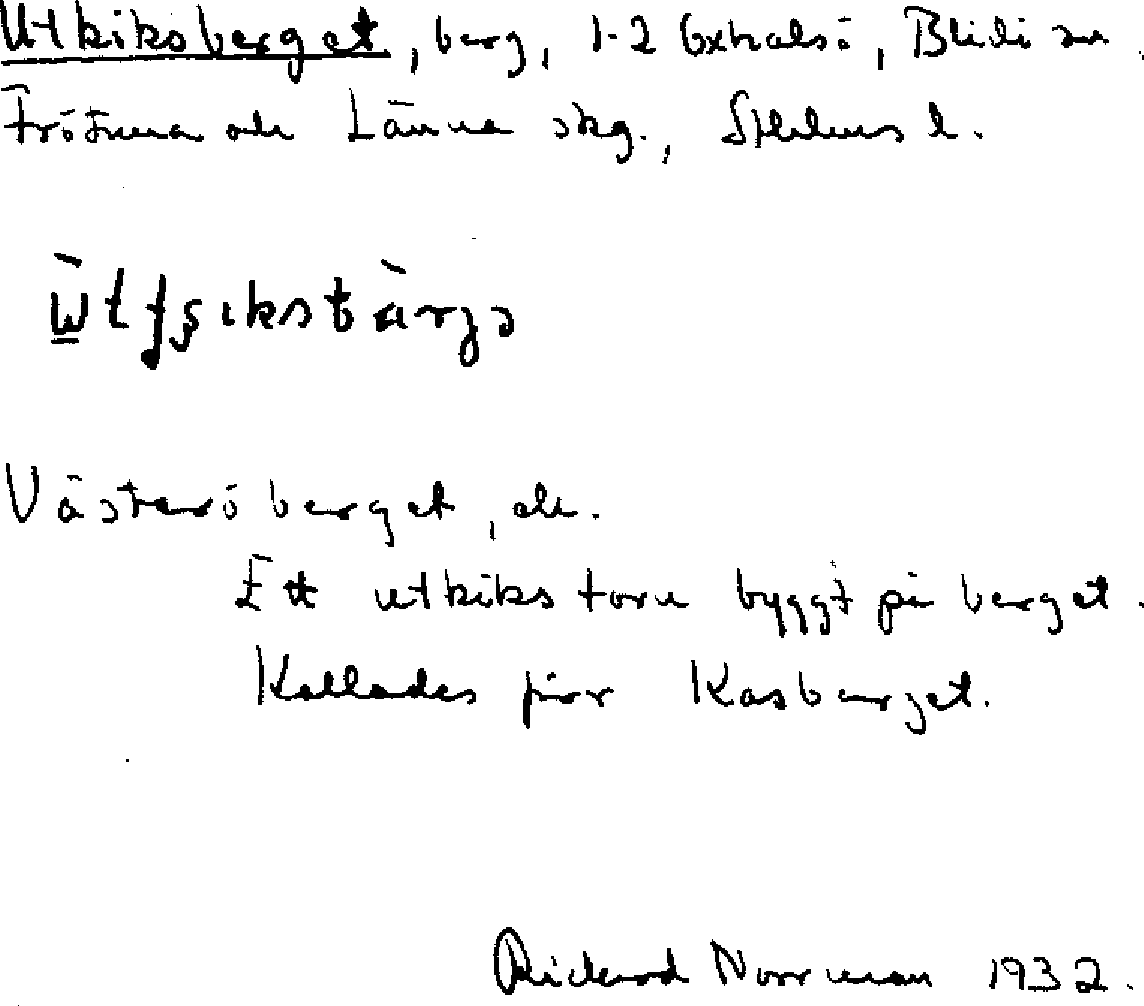 Utkiksberget, berg, 1-2 Oxhalsö, Blidö sn.
Frötuna och Länna skg., Sthlms l.
Västeröberget, ck.
Ett utkikstorn byggt på berget.
Kallades förr Kasberget.
Rickard Norrman 1932.